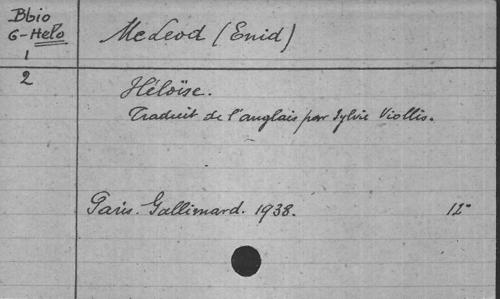 Bbio
G-Helo
1
2
McLeod (Enid)
Héloïse.
Traduit de l'anglais par Sylvie Viollis.
Paris. Gallimard. 1938. 12°